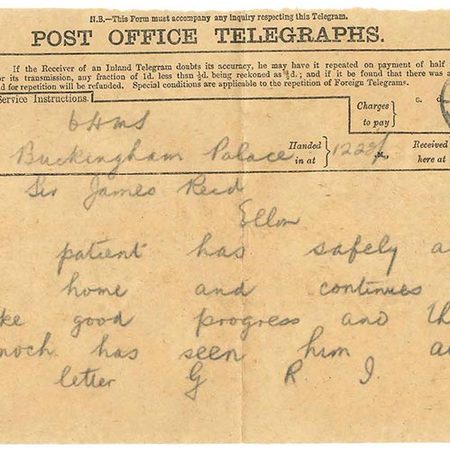 N.B.—This Form must accompany any inquiry respecting this Telegram.
POST OFFICE TELEGRAPHS.
If the Receiver of an Inland Telegram doubts its accuracy, he may have it repeated on payment of half
or its transmission, any fraction of 1d. less than ½d. being reckoned as ½d.; and if it be found that there was a
d for repetition will be refunded. Special conditions are applicable to the repetition of Foreign Telegrams.
Service Instructions.
Charges to pay
s. d.
OHMS
Buckingham Palace
Handed in at
Received here at
Sir James Reid
Ellon
patient has safely a
home and continues
ke good progress and th
noch has seen him a
letter G R I.